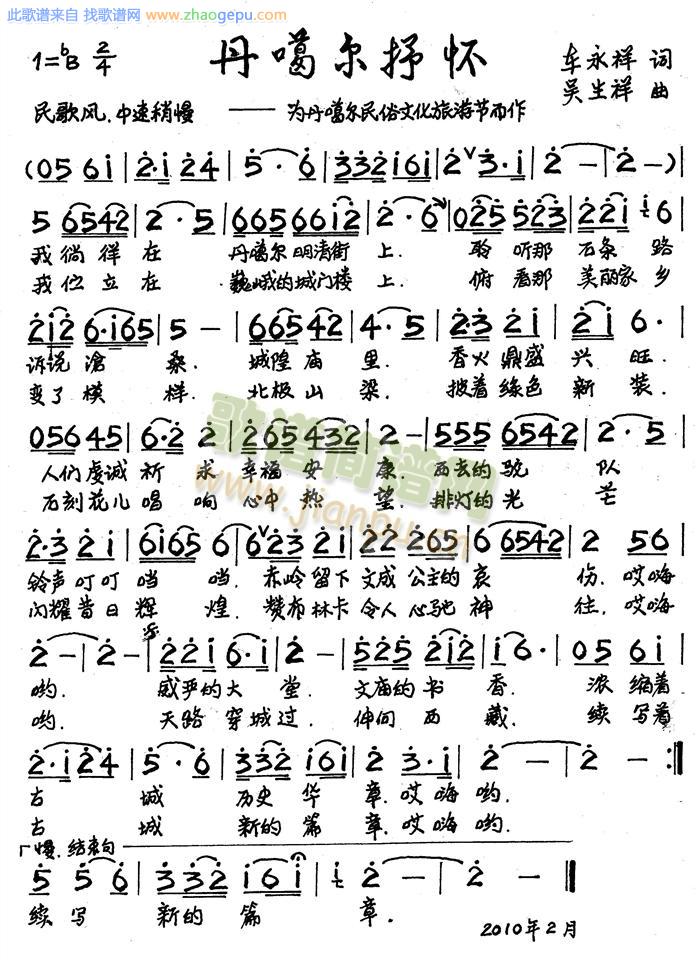 此歌谱来自 找歌谱网 www.zhaogepu.com
1=♭B 2/4
丹噶尔抒怀
车永祥 词
吴生祥 曲
民歌风.中速稍慢 —— 为丹噶尔民俗文化旅游节而作
(05 6i | 2·i 24 | 5 · 6 | 332 i6i | 2 ∨ 3·i | 2 — | 2 — )|
5 6542 | 2 · 5 | 665 66i2 | 2 · 6 | 025 5223 | 22i 6 |
我徜徉在 丹噶尔明清街 上. 聆听那 石条路
我伫立在 巍峨的城门楼上. 俯看那 美丽家乡
2i2 6·i65 | 5 — | 66542 | 4 · 5 | 2·3 2i | 2i 6 · |
诉说 沧 桑. 城隍庙 里. 香火鼎盛 兴 旺.
变了 模 样. 北极山 梁. 披着绿色 新 装.
056 45 | 6·2 2 | 265 432 | 2 — | 555 6542 | 2 · 5 |
人们虔诚 祈 求 幸福 安 康. 西去的 驼 队
石刻花儿 唱 响 心中 热 望. 排灯的 光 芒
2·3 2i | 6i65 6 | 6∨23 2i | 22 265 | 6 6542 | 2 56 |
铃声叮叮 当 当. 赤岭留下 文成 公主的 哀 伤. 哎嗨
闪耀昔日 辉 煌. 赞布林卡 令人 心驰 神 往. 哎嗨
2 — | 2 — | 22i 6·i | 2 — | 525 2i2 | i6· | 05 6i |
哟. 威严的大 堂. 文庙的书 香. 浓 缩着
哟. 天路 穿城过. 伸向 西 藏. 续 写着
2·i 24 | 5 · 6 | 332 i6i | 2 3·i | 2 — | 2 — :‖
古 城 历史 华 章. 哎 嗨 哟.
古 城 新的 篇 章. 哎 嗨 哟.
慢. 结束句
5 5 6 | 332 i6i | 2 — | 2 — ‖
续 写 新的 篇 章.
2010年2月
歌谱简谱网
www.jianpu.cn